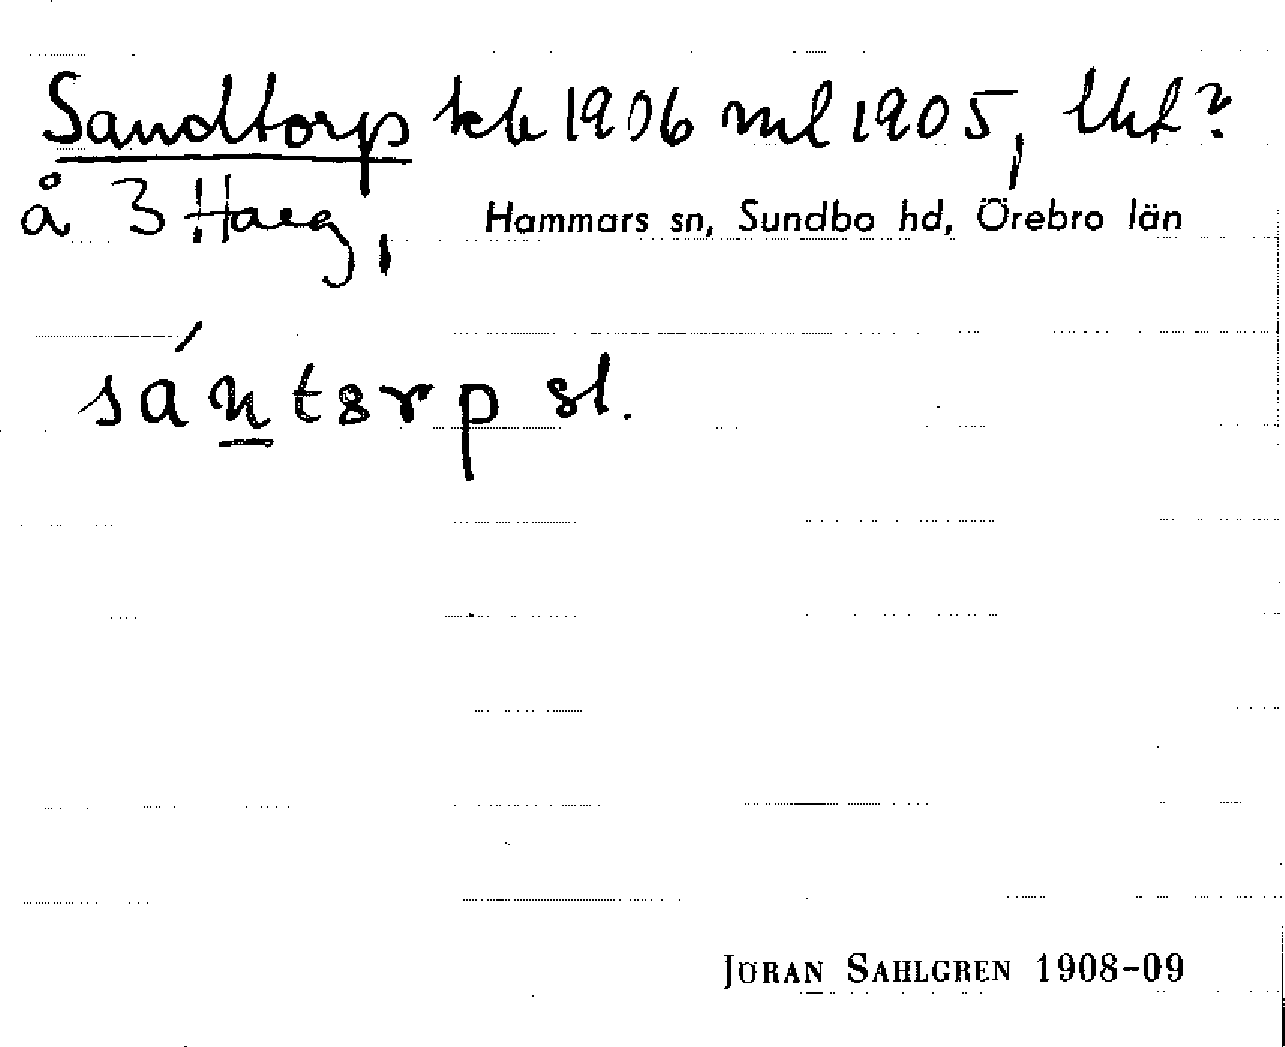 Sandtorp kb 1906 ml 1905, lhf?
å 3 Haeg, Hammars sn, Sundbo hd, Örebro län
sántorp sl.
JÖRAN SAHLGREN 1908-09